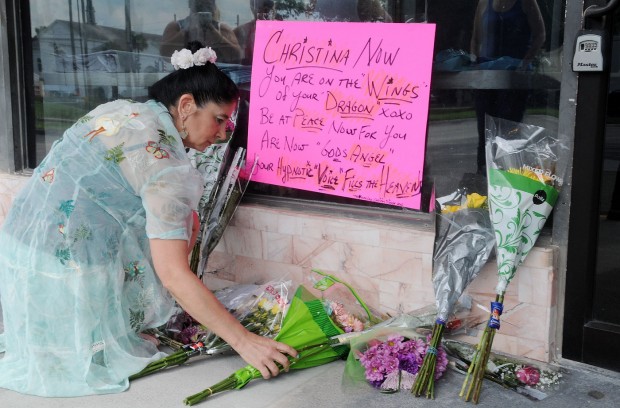 CHRISTINA NOW
YOU ARE ON THE "WINGS"
OF YOUR "DRAGON" XOXO
BE AT PEACE NOW FOR YOU
ARE NOW "GODS ANGEL"
YOUR HYPNOTIC "VOICE" FILLS THE HEAVEN